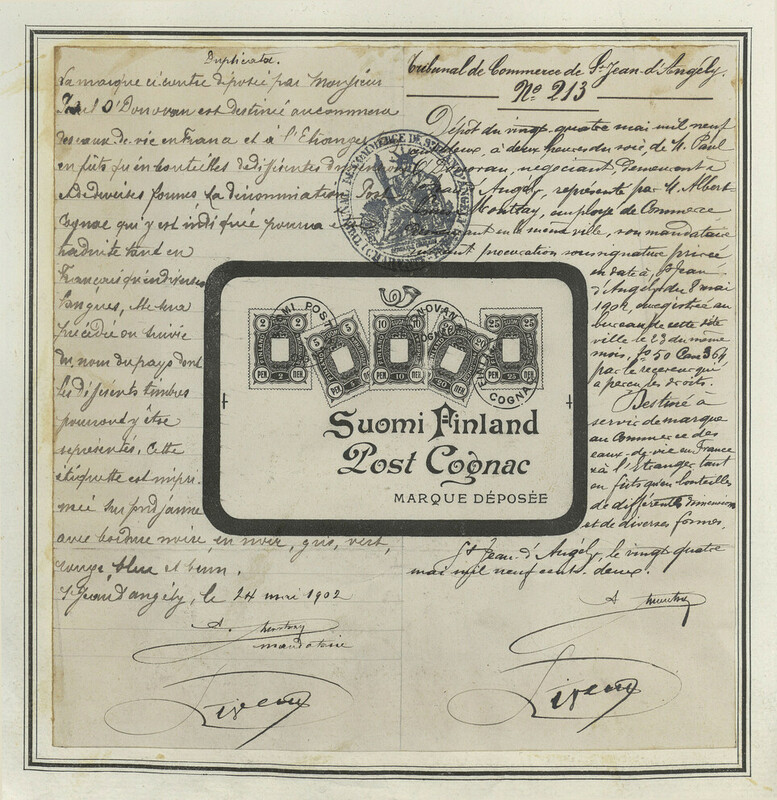 Duplicata.
La marque ci contre déposée par Monsieur
Paul O'Donovan est destinée au commerce
des eaux-de-vie en France et à l'Etranger
en fûts qu'en bouteilles de différentes
et de diverses formes, la dénomination Post
Cognac qui y est indiquée pourra
traduite tant en
Français qu'en diverses
langues, et sera
précédée ou suivie
du nom du pays dont
les différents timbres
pourront y être
représentés, Cette
étiquette est impri-
mée sur fond jaune
avec bordure noire, en noir, gris, vert,
rouge, bleu et brun.
St Jean d'Angély, le 24 mai 1902
mandataire
Tribunal de Commerce de St Jean-d'Angély.
No 213
Dépôt du vingt quatre mai mil neuf
cent deux, à deux heures du soir, de M. Paul
O'Donovan, négociant, demeurant à
St Jean d'Angély, représenté par M. Albert
employé de Commerce
demeurant en la même ville, son mandataire
suivant procuration sous signature privée
en date à St Jean
d'Angély du 8 mai
1902, enregistrée au
bureau de cette dite
ville le 23 du même
mois, fo 50 Case 364
par le receveur qui
a perçu les droits.
Destiné à
servir de marque
au Commerce des
eaux-de-vie en France
et à l'Etranger tant
en fûts qu'en bouteilles
de différentes dimensions
et de diverses formes.
St Jean d'Angély, le vingt quatre
mai mil neuf cent deux.
TRIBUNAL DE COMMERCE DE ST JEAN D'ANGELY
2 2
FINLAND
PEN 2 ПЕН
5 5
PEN 5
10 10
PEN 10 ПЕН
20
20 ПЕН
25 25
PEN 25 ПЕН
SUOMI POST
DONOVAN
COGNAC
FINLAND
COGNAC
Suomi Finland
Post Cognac
MARQUE DÉPOSÉE